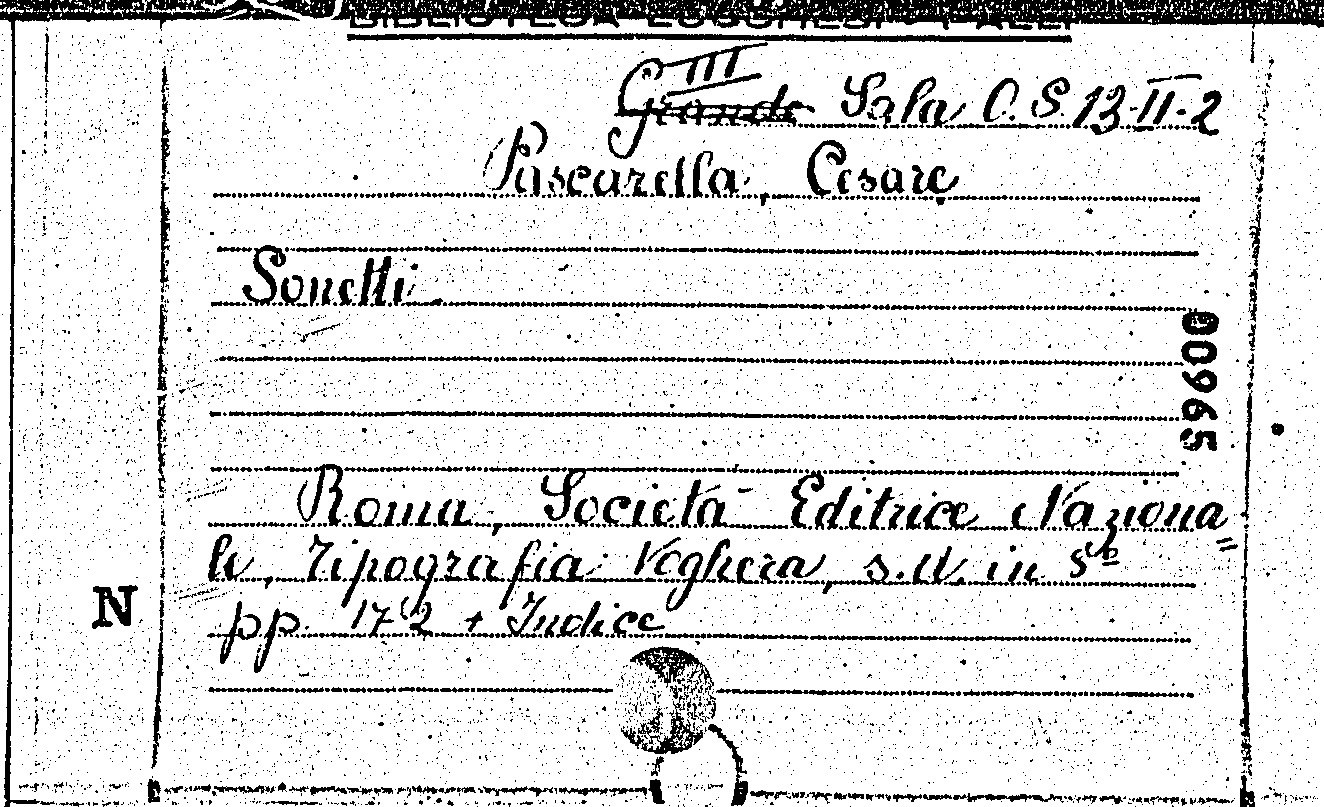 III
Grande Sala O. S. 13-II-2
Pascarella, Cesare
Sonetti.
00965
Roma, Società Editrice Naziona=
le, Tipografia Voghera, s.d. in 8º
pp. 172 + Indice
N